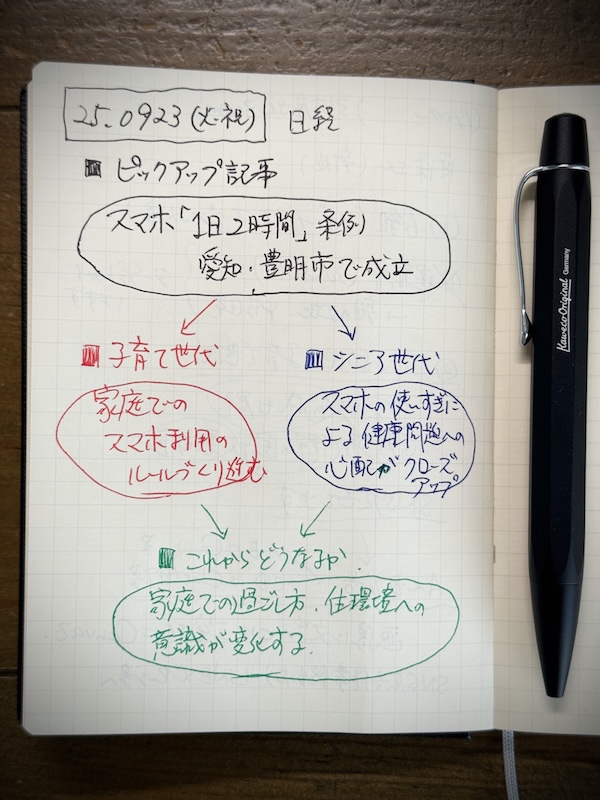 25.0923(火・祝) 日経
■ ピックアップ記事
スマホ「1日2時間」条例
愛知・豊明市で成立
■ 子育て世代
家庭での
スマホ利用の
ルールづくり進む
■ シニア世代
スマホの使いすぎに
よる健康問題への
心配がクローズ
アップ
■ これからどうなるか.
家庭での過ごし方、住環境への
意識が変化する.
Kaweco-Original Germany